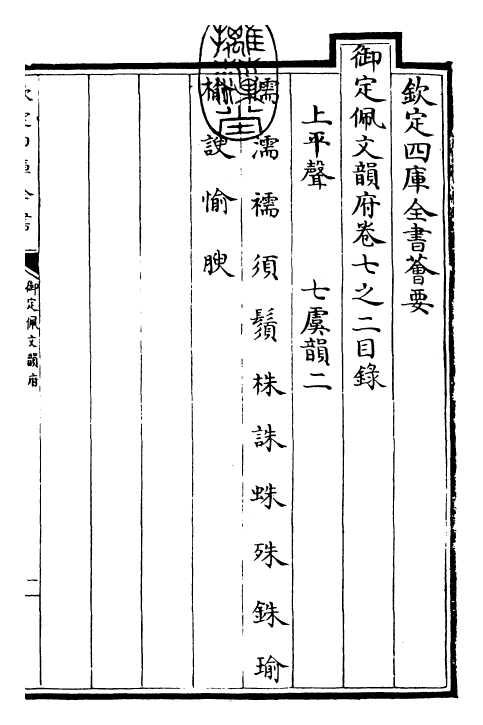 欽定四庫全書薈要
御定佩文韻府卷七之二目錄
上平聲 七虞韻二
濡襦須鬚株誅蛛殊銖瑜
榆諛愉腴
御定佩文韻府
一